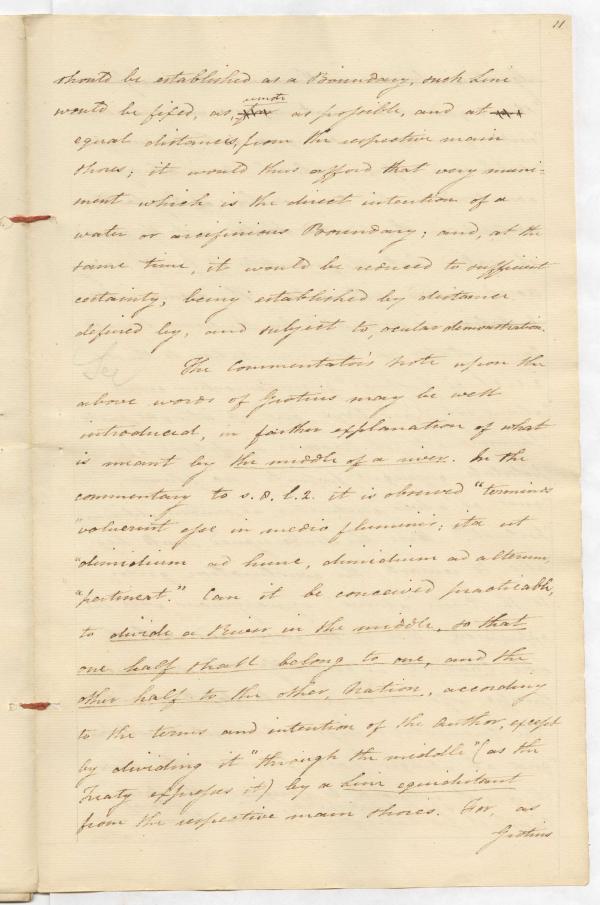 11
should be established as a Boundary, such Line
would be fixed, as, remote as possible, and at
equal distances, from the respective main
shores; it would thus afford that very muni-
ment which is the direct intention of a
water or arcifinious Boundary; and, at the
same time, it would be reduced to sufficient
certainty, being established by distances
defined by, and subject to, ocular demonstration.
See
The Commentator's Note upon the
above words of Grotius may be well
introduced, in farther explanation of what
is meant by the middle of a river. In the
commentary to s. 8. l. 2. it is observed "terminos
"voluerint esse in medio fluminis; ita ut
"dimidium ad hunc, dimidium ad alterum,
"pertineat." Can it be conceived practicable,
to divide a River in the middle, so that
one half shall belong to one, and the
other half to the other, Nation, according
to the terms and intention of the Author, except
by dividing it "through the middle" (as the
Treaty expresses it) by a Line equidistant
from the respective main shores. For, as
Grotius